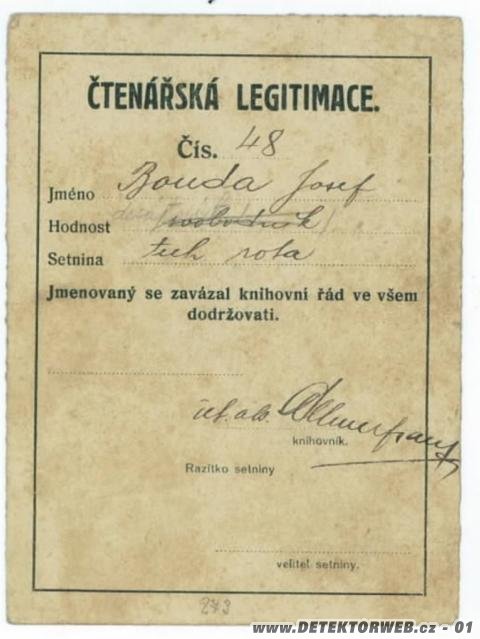 ČTENÁŘSKÁ LEGITIMACE.
Čís. 48
Jméno Bouda Josef
Hodnost svobodník
Setnina tech rota
Jmenovaný se zavázal knihovní řád ve všem
dodržovati.
knihovník.
Razítko setniny
velitel setniny.
243
www.DETEKTORWEB.cz - 01